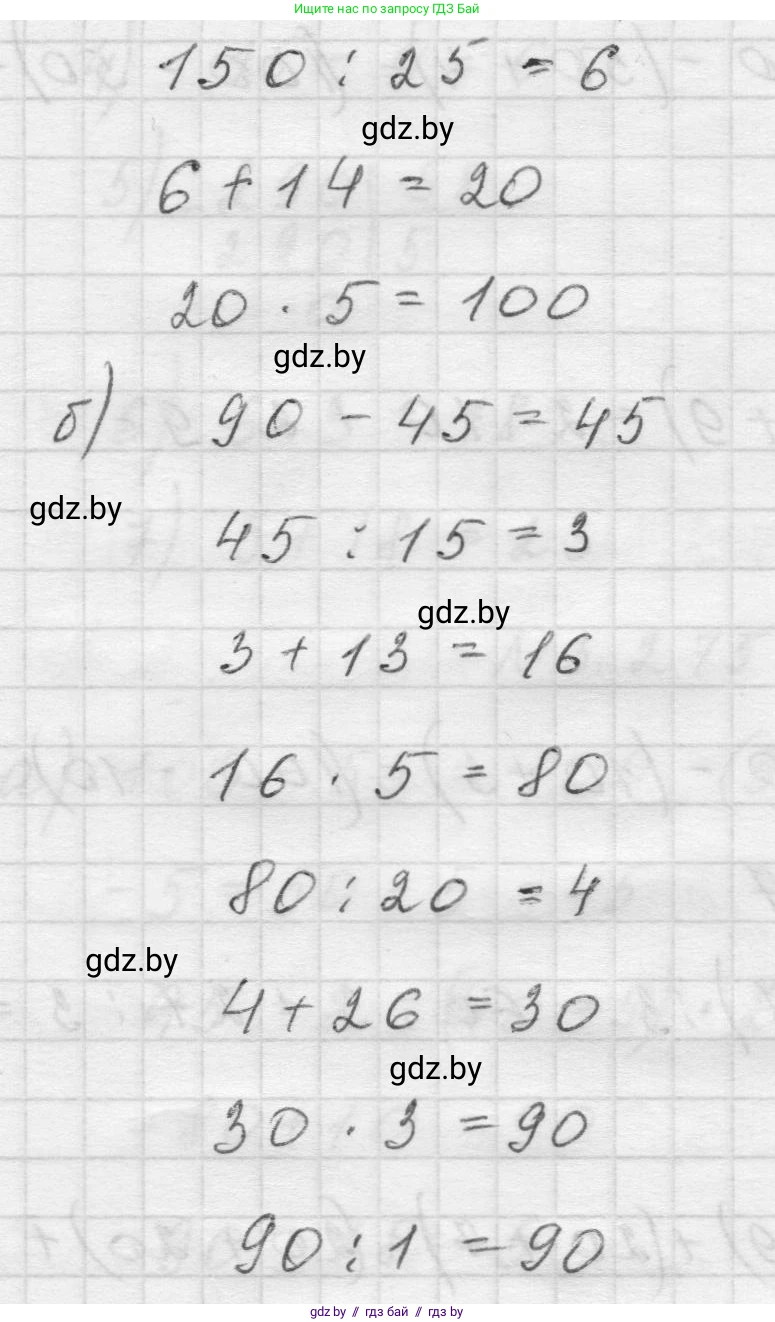 Ищите нас по запросу ГДЗ Бай
150 : 25 = 6
gdz.by
6 + 14 = 20
20 · 5 = 100
gdz.by
б) 90 - 45 = 45
gdz.by
45 : 15 = 3
gdz.by
3 + 13 = 16
16 · 5 = 80
80 : 20 = 4
gdz.by
4 + 26 = 30
gdz.by
30 · 3 = 90
90 : 1 = 90
gdz.by // гдз бай // gdz by